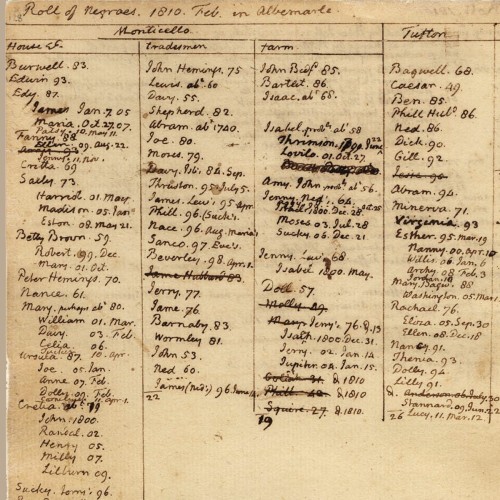 Roll of Negroes. 1810. Feb. in Albemarle.
Monticello.
House &c.
Burwell. 83.
Edwin 93.
Edy. 87.
James Jan. 7. 05
Maria. Oct. 27. 07.
Patsy. 10. May 11.
Fanny 88
Ellen. 09. Aug. 22
Jenny. 11. Nov.
Cretia 69
Sally. 73
Harriet. 01. May
Madison. 05. Jan
Eston. 08. May 21.
Betty Brown. 59.
Robert. 99. Dec.
Mary. 01. Oct.
Peter Hemings. 70.
Nance. 61.
Mary. perhaps abt 80.
William 01. Mar.
Davy. 03. Feb.
Celia. 06.
Ursula 87.
Joe. 05. Jan.
Anne 07. Feb.
Dolly. 09. Feb.
Cretia
John. 1800.
Randal. 02.
Henry 05.
Milly. 07.
Lilburn 09.
Sucky. 96.
tradesmen
John Hemings. 75
Lewis. abt 60
Davy. 55.
Shepherd. 82.
Abram. abt 1740.
Joe. 80.
Moses. 79.
Davy. 84. Sep.
Thruston. 95. July 5.
James. Lew's 95 Apr.
Phill. 96. Suck's.
Nace. 96. Aug. Maria's
Sanco. 97. Eve's.
Beverley. 98. Apr. 1.
James Hubbard 83.
Jerry. 77.
Jame. 76.
Barnaby. 83.
Wormley 81.
John 53.
Ned 60.
James (Ned's) 96. June
22
farm.
John Bedf 85.
Bartlet. 86.
Isaac. abt 68.
Isabel. probly abt 58
Thrimson. 1799. June
Lovilo. 01. Oct. 27
Amy. John probly abt 56.
Jenny. Ned's. 64.
1800. Dec. 28.
Moses 03. Jul. 28
Sucky 06. Dec. 21.
Jenny. Lew's 68
Isabel 1800. May.
Doll. 57
Molly 49
Mary. Jerry's. 76.
Isab. 1800. Dec. 31.
Jerry. 02. Jan. 14
Jupiter 04. Jan. 15.
Goliah 31. d. 1810
Phill 68. d. 1810
Squire. 27 d. 1810.
19
Tufton
Bagwell. 68.
Caesar. 49.
Ben. 85.
Phill Hub. 86.
Ned. 86.
Dick. 90.
Gill. 92.
Abram. 94.
Minerva. 71.
Virginia. 93
Esther. 95. Mar. 19
Nanny. 00. Apr. 10
Willis 06. Jan. 6
Archy. 08 Feb. 3
Mary. Bagw. 88
Washington. 05. Mar.
Rachael. 76.
Eliza. 05. Sep. 30
Ellen. 08. Dec. 18
Nancy. 91.
Thenia. 93.
Dolly. 94
Lilly. 91.
d. Anderson. 06. July. 30
Stannard. 09. June. 22
26 Lucy. 11. Mar. 12